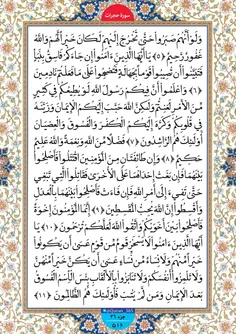 سورة حجرات
وَلَوْ أَنَّهُمْ صَبَرُوا حَتَّىٰ تَخْرُجَ إِلَيْهِمْ لَكَانَ خَيْرًا لَهُمْ وَاللَّهُ
غَفُورٌ رَحِيمٌ ﴿٥﴾ يَا أَيُّهَا الَّذِينَ آمَنُوا إِنْ جَاءَكُمْ فَاسِقٌ بِنَبَإٍ
فَتَبَيَّنُوا أَنْ تُصِيبُوا قَوْمًا بِجَهَالَةٍ فَتُصْبِحُوا عَلَىٰ مَا فَعَلْتُمْ نَادِمِينَ
﴿٦﴾ وَاعْلَمُوا أَنَّ فِيكُمْ رَسُولَ اللَّهِ لَوْ يُطِيعُكُمْ فِي كَثِيرٍ
مِنَ الْأَمْرِ لَعَنِتُّمْ وَلَٰكِنَّ اللَّهَ حَبَّبَ إِلَيْكُمُ الْإِيمَانَ وَزَيَّنَهُ
فِي قُلُوبِكُمْ وَكَرَّهَ إِلَيْكُمُ الْكُفْرَ وَالْفُسُوقَ وَالْعِصْيَانَ
أُولَٰئِكَ هُمُ الرَّاشِدُونَ ﴿٧﴾ فَضْلًا مِنَ اللَّهِ وَنِعْمَةً وَاللَّهُ عَلِيمٌ
حَكِيمٌ ﴿٨﴾ وَإِنْ طَائِفَتَانِ مِنَ الْمُؤْمِنِينَ اقْتَتَلُوا فَأَصْلِحُوا
بَيْنَهُمَا فَإِنْ بَغَتْ إِحْدَاهُمَا عَلَى الْأُخْرَىٰ فَقَاتِلُوا الَّتِي تَبْغِي
حَتَّىٰ تَفِيءَ إِلَىٰ أَمْرِ اللَّهِ فَإِنْ فَاءَتْ فَأَصْلِحُوا بَيْنَهُمَا بِالْعَدْلِ
وَأَقْسِطُوا إِنَّ اللَّهَ يُحِبُّ الْمُقْسِطِينَ ﴿٩﴾ إِنَّمَا الْمُؤْمِنُونَ إِخْوَةٌ
فَأَصْلِحُوا بَيْنَ أَخَوَيْكُمْ وَاتَّقُوا اللَّهَ لَعَلَّكُمْ تُرْحَمُونَ ﴿١٠﴾ يَا أَيُّهَا
الَّذِينَ آمَنُوا لَا يَسْخَرْ قَوْمٌ مِنْ قَوْمٍ عَسَىٰ أَنْ يَكُونُوا
خَيْرًا مِنْهُمْ وَلَا نِسَاءٌ مِنْ نِسَاءٍ عَسَىٰ أَنْ يَكُنَّ خَيْرًا مِنْهُنَّ
وَلَا تَلْمِزُوا أَنْفُسَكُمْ وَلَا تَنَابَزُوا بِالْأَلْقَابِ بِئْسَ الِاسْمُ الْفُسُوقُ
بَعْدَ الْإِيمَانِ وَمَنْ لَمْ يَتُبْ فَأُولَٰئِكَ هُمُ الظَّالِمُونَ ﴿١١﴾
جزء ٢٦
٥١٦